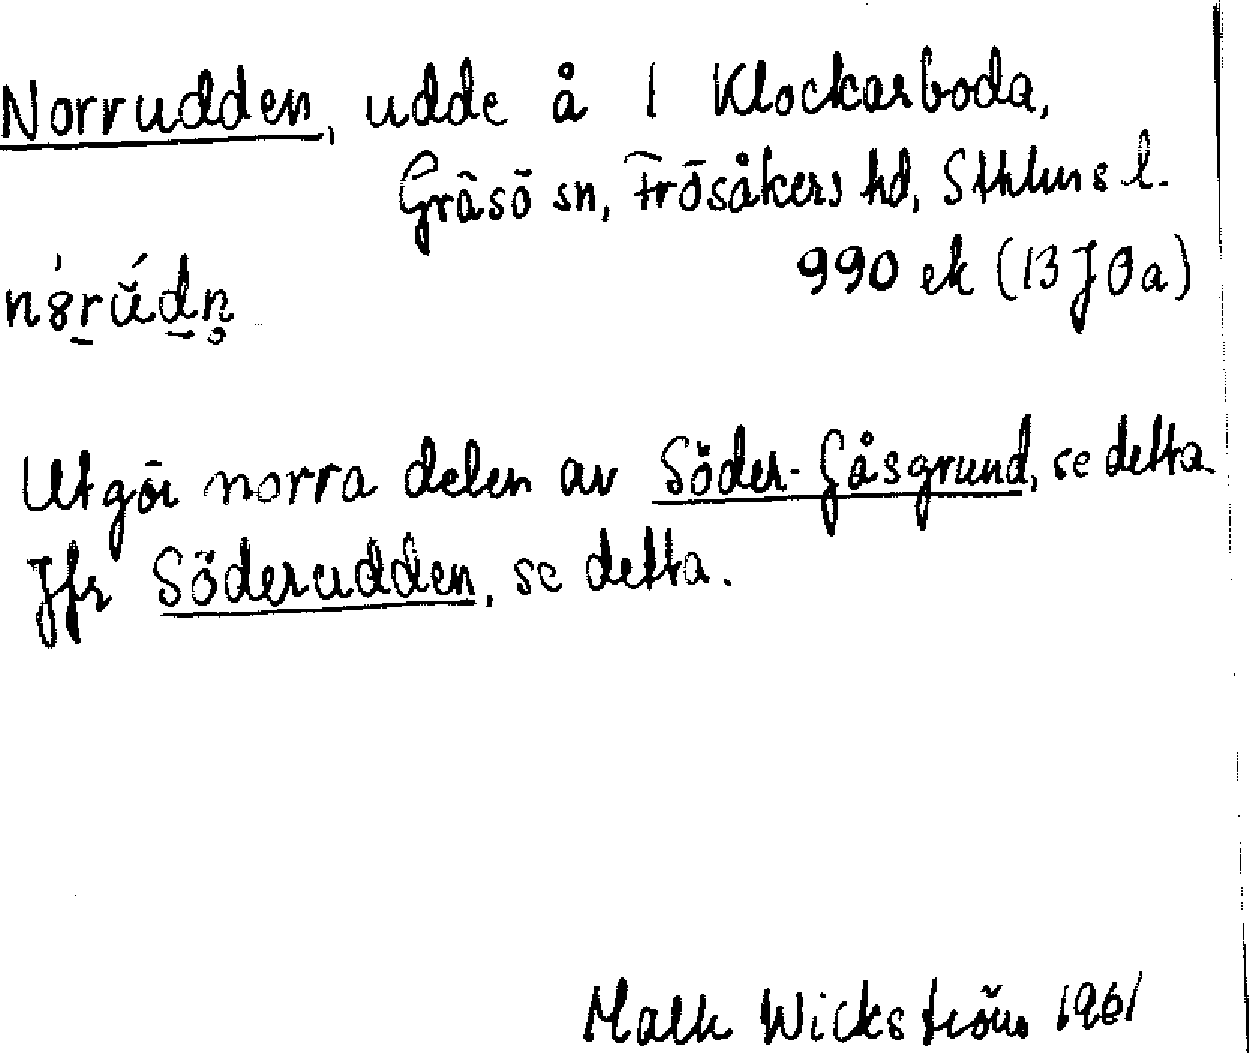 Norrudden, udde å 1 Klockarboda,
Gräsö sn, Frösåkers hd, Sthlms l.
990 ek (13 J 0a)
Utgör norra delen av Söder-Gåsgrund, se detta
Jfr Söderudden, se detta.
Wickström 1961